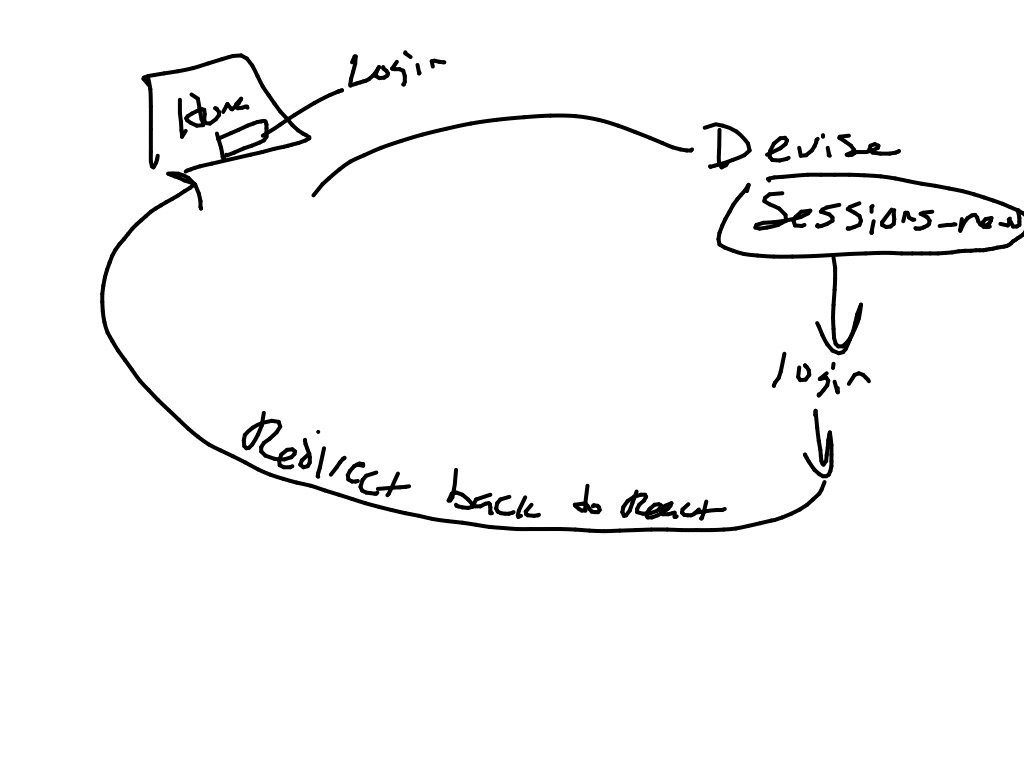 Login
Home
Devise
Sessions_new
login
Redirect back to React